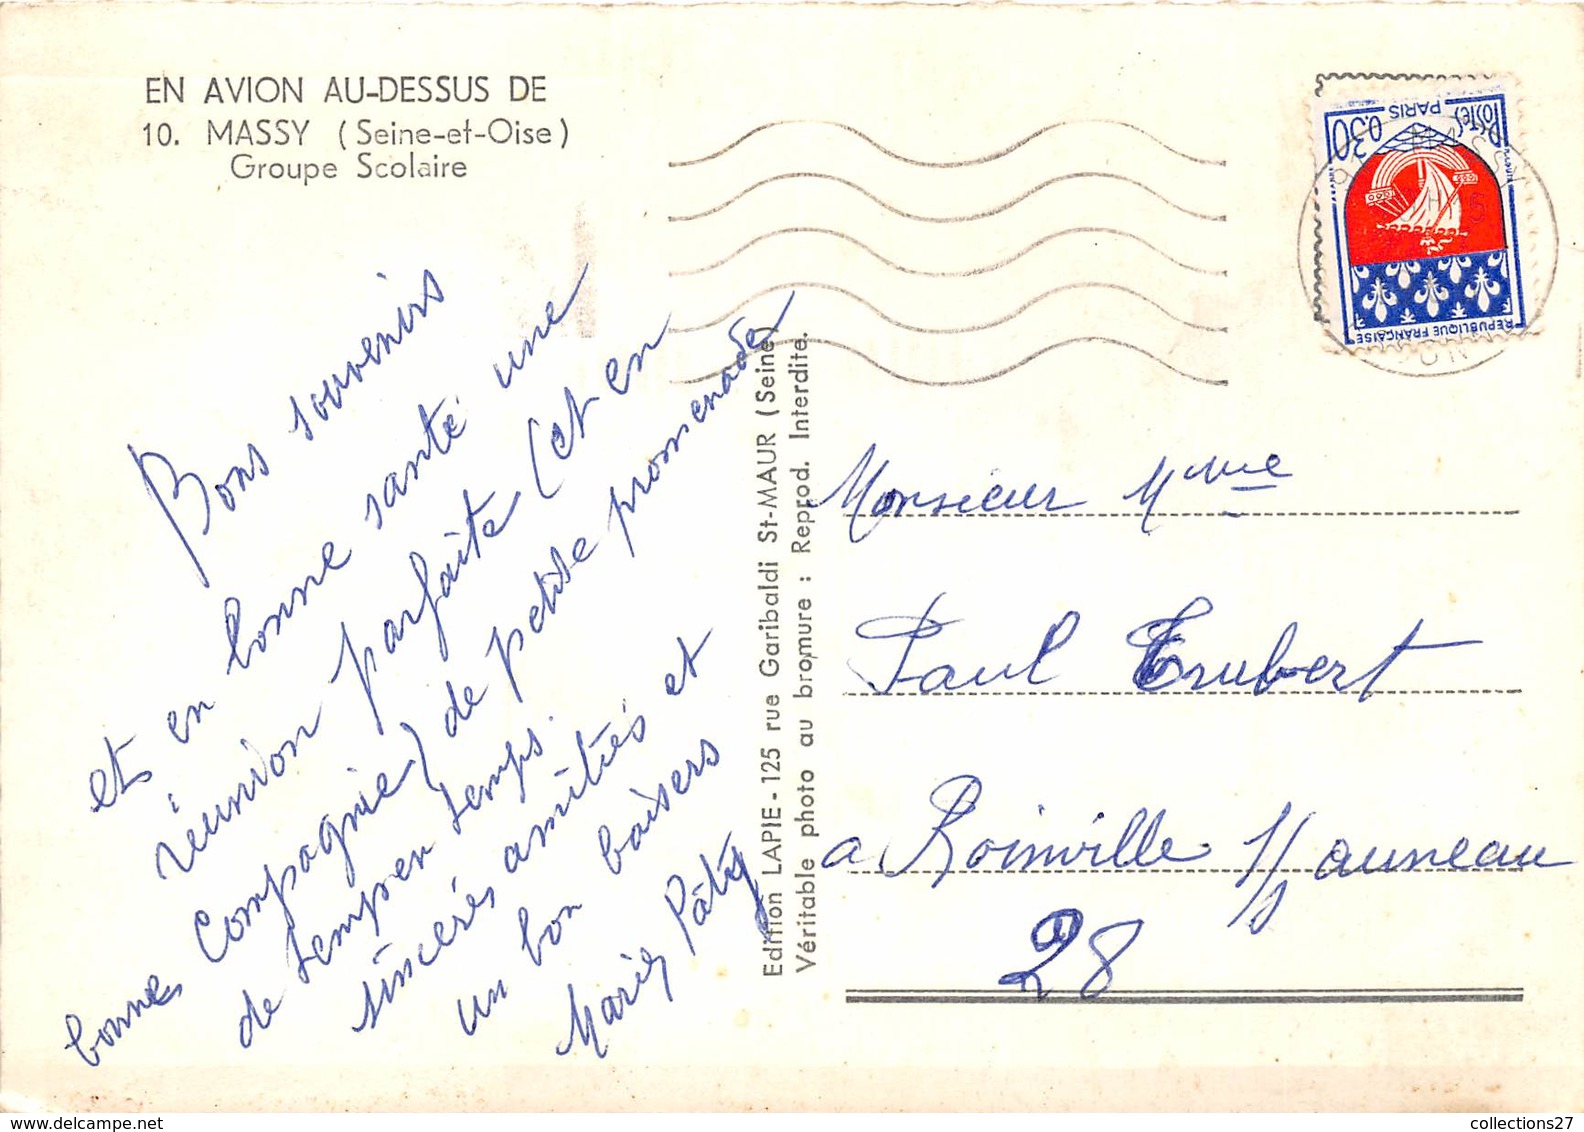 EN AVION AU-DESSUS DE
10. MASSY (Seine-et-Oise)
Groupe Scolaire
Bons souvenirs
et en bonne santé une
réunion parfaite (et en
bonne compagnie) de petite promenade
de temps en temps.
sincères amitiés et
un bon baisers
Edition LAPIE - 125 rue Garibaldi St-MAUR (Seine)
Véritable photo au bromure : Reprod. Interdite.
POSTES
PARIS
0,30
RÉPUBLIQUE FRANÇAISE
MASSY
Monsieur Mme
Paul Trubert
a Roinville s/s auneau
28
collections27